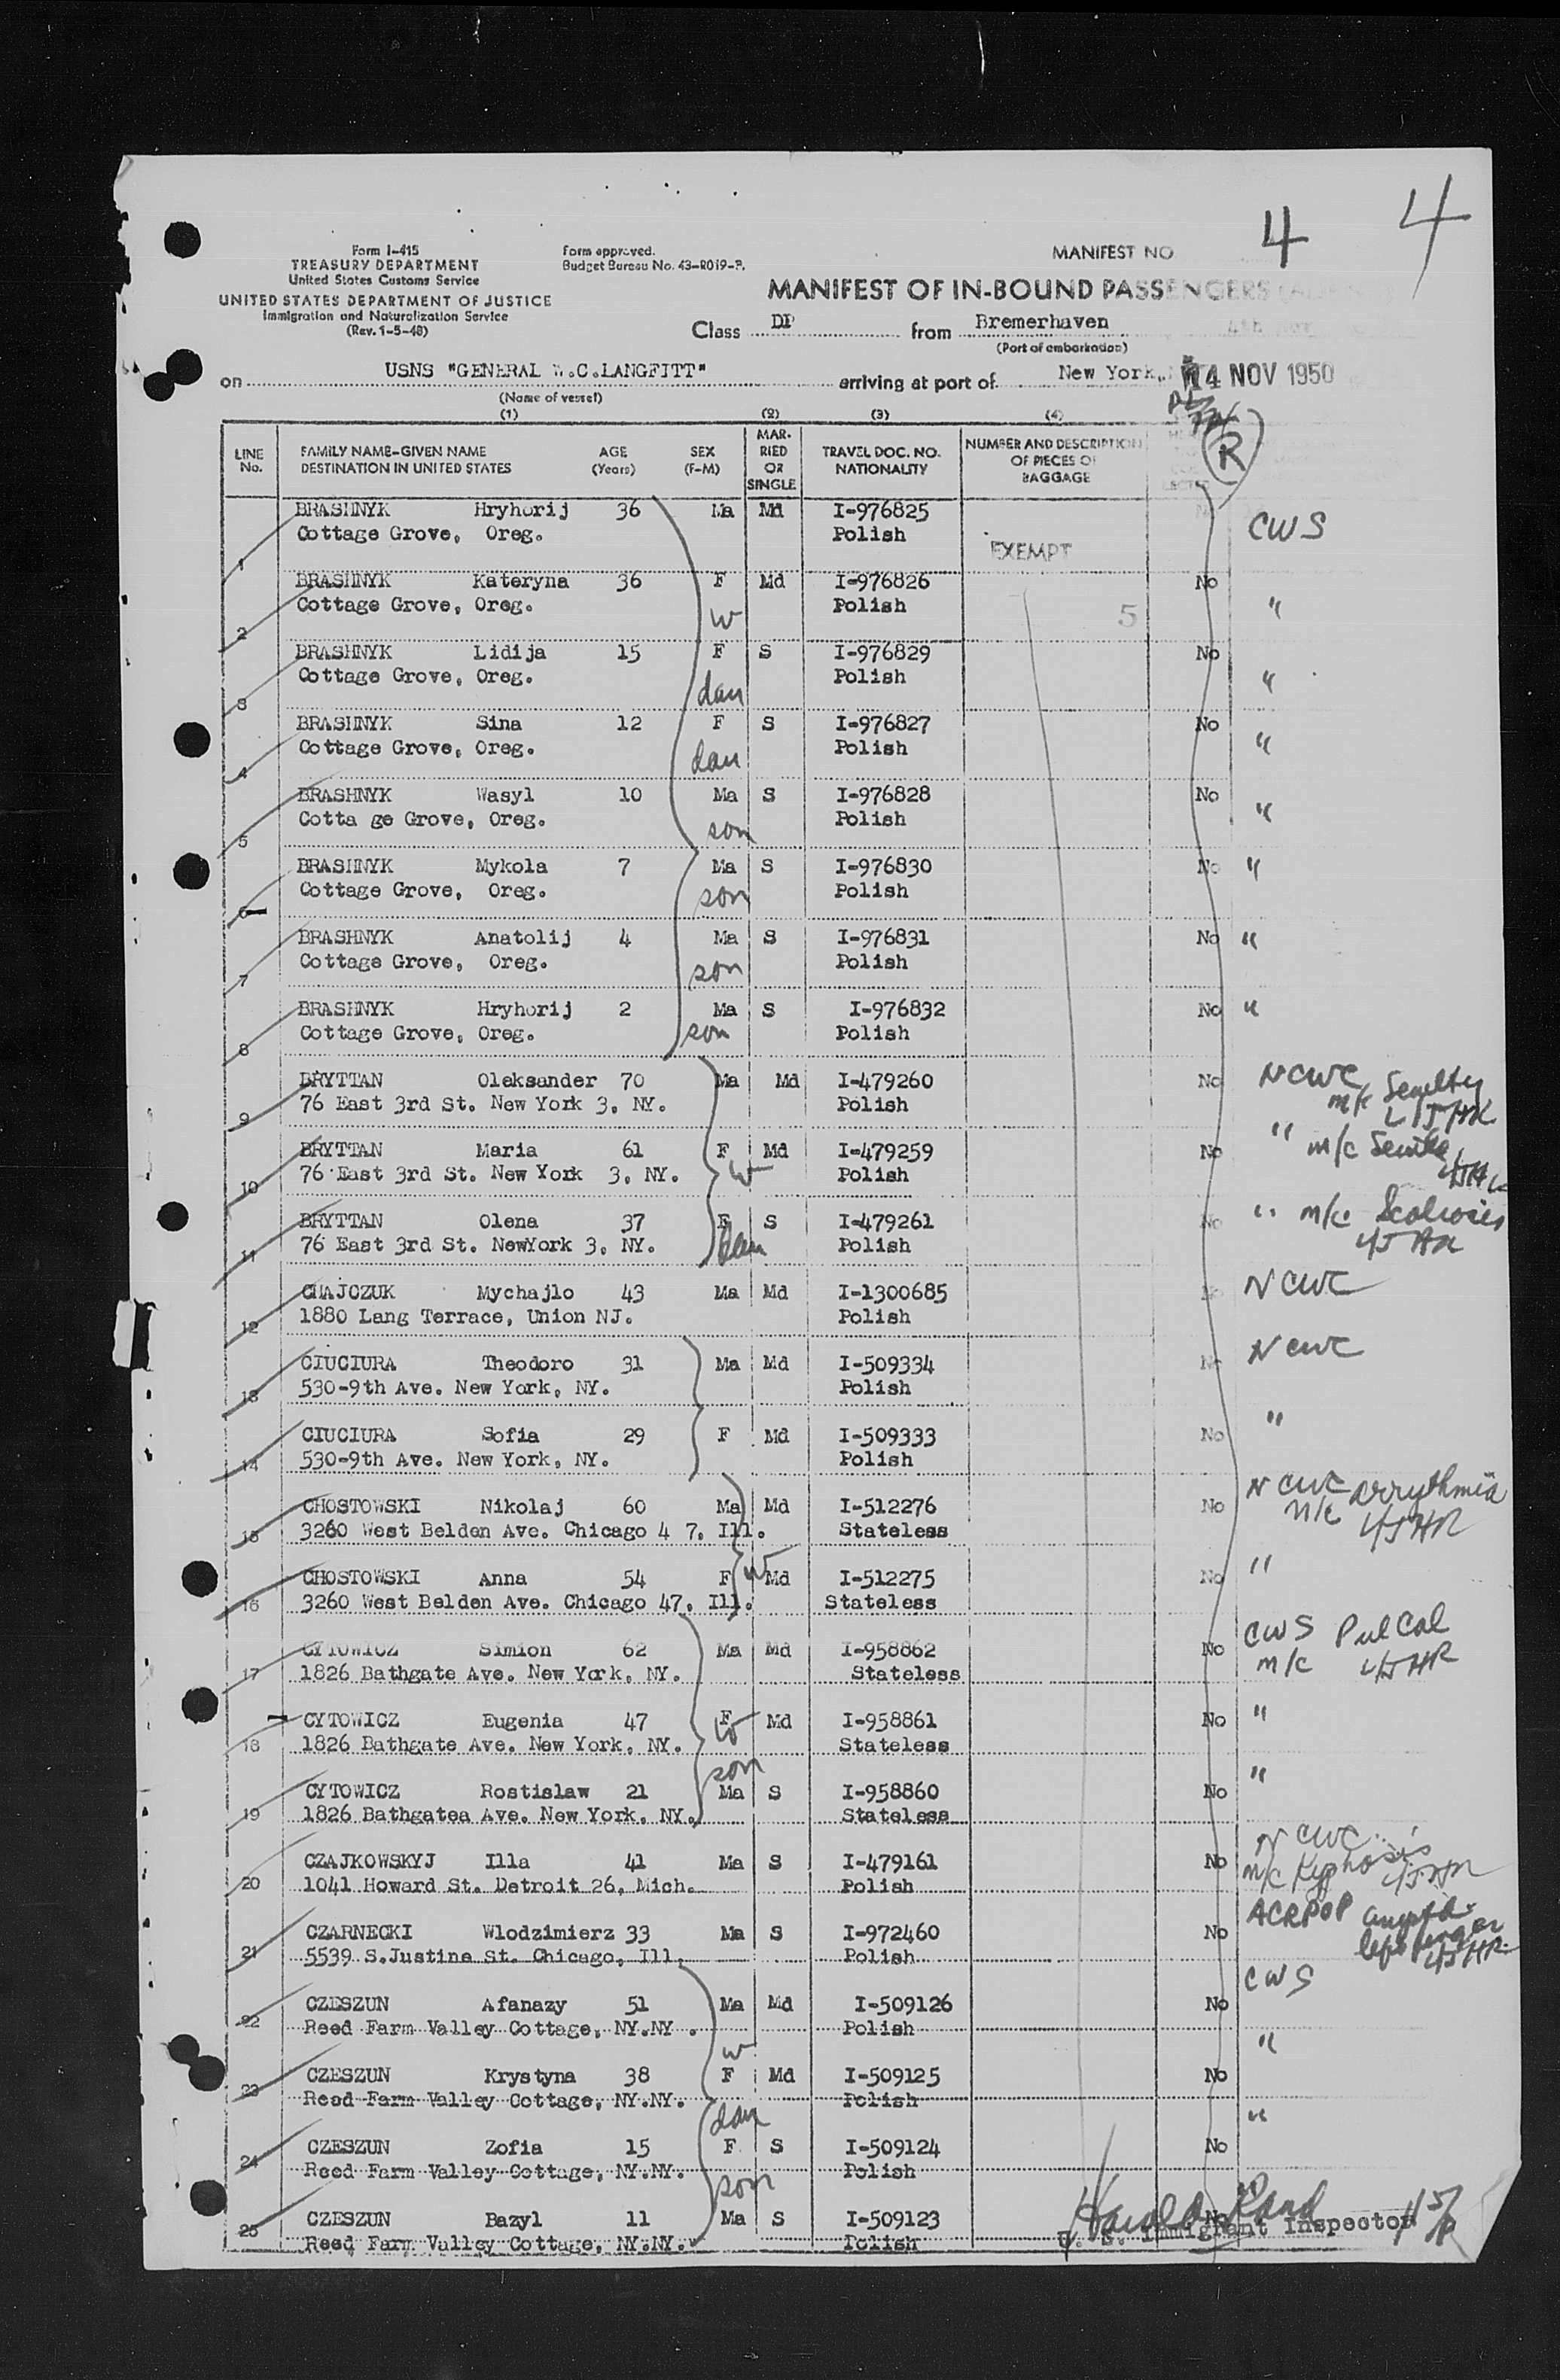 4 4
Form I-415
TREASURY DEPARTMENT
United States Customs Service
UNITED STATES DEPARTMENT OF JUSTICE
Immigration and Naturalization Service
(Rev. 1-5-48)
Form approved.
Budget Bureau No. 43-R019-2.
MANIFEST NO
MANIFEST OF IN-BOUND PASSENGERS
Class DP from Bremerhaven
(Port of embarkation)
on USNS "GENERAL W.C.LANGFITT" arriving at port of New York, 4 NOV 1950
(Name of vessel)
(1) (2) (3) (4)
LINE No. FAMILY NAME-GIVEN NAME DESTINATION IN UNITED STATES AGE (Years) SEX (F-M) MARRIED OR SINGLE TRAVEL DOC. NO. NATIONALITY NUMBER AND DESCRIPTION OF PIECES OF BAGGAGE R
1 BRASHNYK Hryhorij 36 Ma Md I-976825 CWS
Cottage Grove, Oreg. Polish EXEMPT
2 BRASHNYK Kateryna 36 F Md I-976826 No "
Cottage Grove, Oreg. w Polish 5
3 BRASHNYK Lidija 15 F S I-976829 No "
Cottage Grove, Oreg. dau Polish
4 BRASHNYK Sina 12 F S I-976827 No "
Cottage Grove, Oreg. dau Polish
5 BRASHNYK Wasyl 10 Ma S I-976828 No "
Cotta ge Grove, Oreg. son Polish
6 BRASHNYK Mykola 7 Ma S I-976830 No "
Cottage Grove, Oreg. son Polish
7 BRASHNYK Anatolij 4 Ma S I-976831 No "
Cottage Grove, Oreg. son Polish
8 BRASHNYK Hryhorij 2 Ma S I-976832 No "
Cottage Grove, Oreg. son Polish
9 BRYTTAN Oleksander 70 Ma Md I-479260 No NCWC m/c
76 East 3rd St. New York 3, NY. Polish
10 BRYTTAN Maria 61 F Md I-479259 No " m/c
76 East 3rd St. New York 3, NY. w Polish
11 BRYTTAN Olena 37 F S I-479261 No " m/c Scoliosis
76 East 3rd St. NewYork 3, NY. dau Polish
12 CHAJCZUK Mychajlo 43 Ma Md I-1300685 No NCWC
1880 Lang Terrace, Union NJ. Polish
13 CIUCIURA Theodoro 31 Ma Md I-509334 No NCWC
530-9th Ave. New York, NY. Polish
14 CIUCIURA Sofia 29 F Md I-509333 No "
530-9th Ave. New York, NY. Polish
15 CHOSTOWSKI Nikolaj 60 Ma Md I-512276 No NCWC m/c arrythmia
3260 West Belden Ave. Chicago 4 7, Ill. Stateless
16 CHOSTOWSKI Anna 54 F w Md I-512275 No "
3260 West Belden Ave. Chicago 47, Ill. Stateless
17 CYTOWICZ Simion 62 Ma Md I-958862 No CWS Pul Cal
1826 Bathgate Ave. New York, NY. Stateless m/c
18 CYTOWICZ Eugenia 47 F Md I-958861 No "
1826 Bathgate Ave. New York, NY. w Stateless
son
19 CYTOWICZ Rostislaw 21 Ma S I-958860 No "
1826 Bathgatea Ave. New York, NY. Stateless
20 CZAJKOWSKYJ Illa 41 Ma S I-479161 No NCWC
1041 Howard St. Detroit 26, Mich. Polish m/c Kyphosis
21 CZARNECKI Wlodzimierz 33 Ma S I-972460 No ACRPOP
5539 S.Justina St. Chicago, Ill. Polish left finger
22 CZESZUN Afanazy 51 Ma Md I-509126 No CWS
Reed Farm Valley Cottage, NY.NY . Polish
w
23 CZESZUN Krystyna 38 F Md I-509125 No "
Reed Farm Valley Cottage, NY.NY. Polish
dau
24 CZESZUN Zofia 15 F S I-509124 No "
Reed Farm Valley Cottage, NY.NY. Polish
son
25 CZESZUN Bazyl 11 Ma S I-509123 No
Reed Farm Valley Cottage, NY.NY. Polish
Harold Rand
U. S. Immigrant Inspector